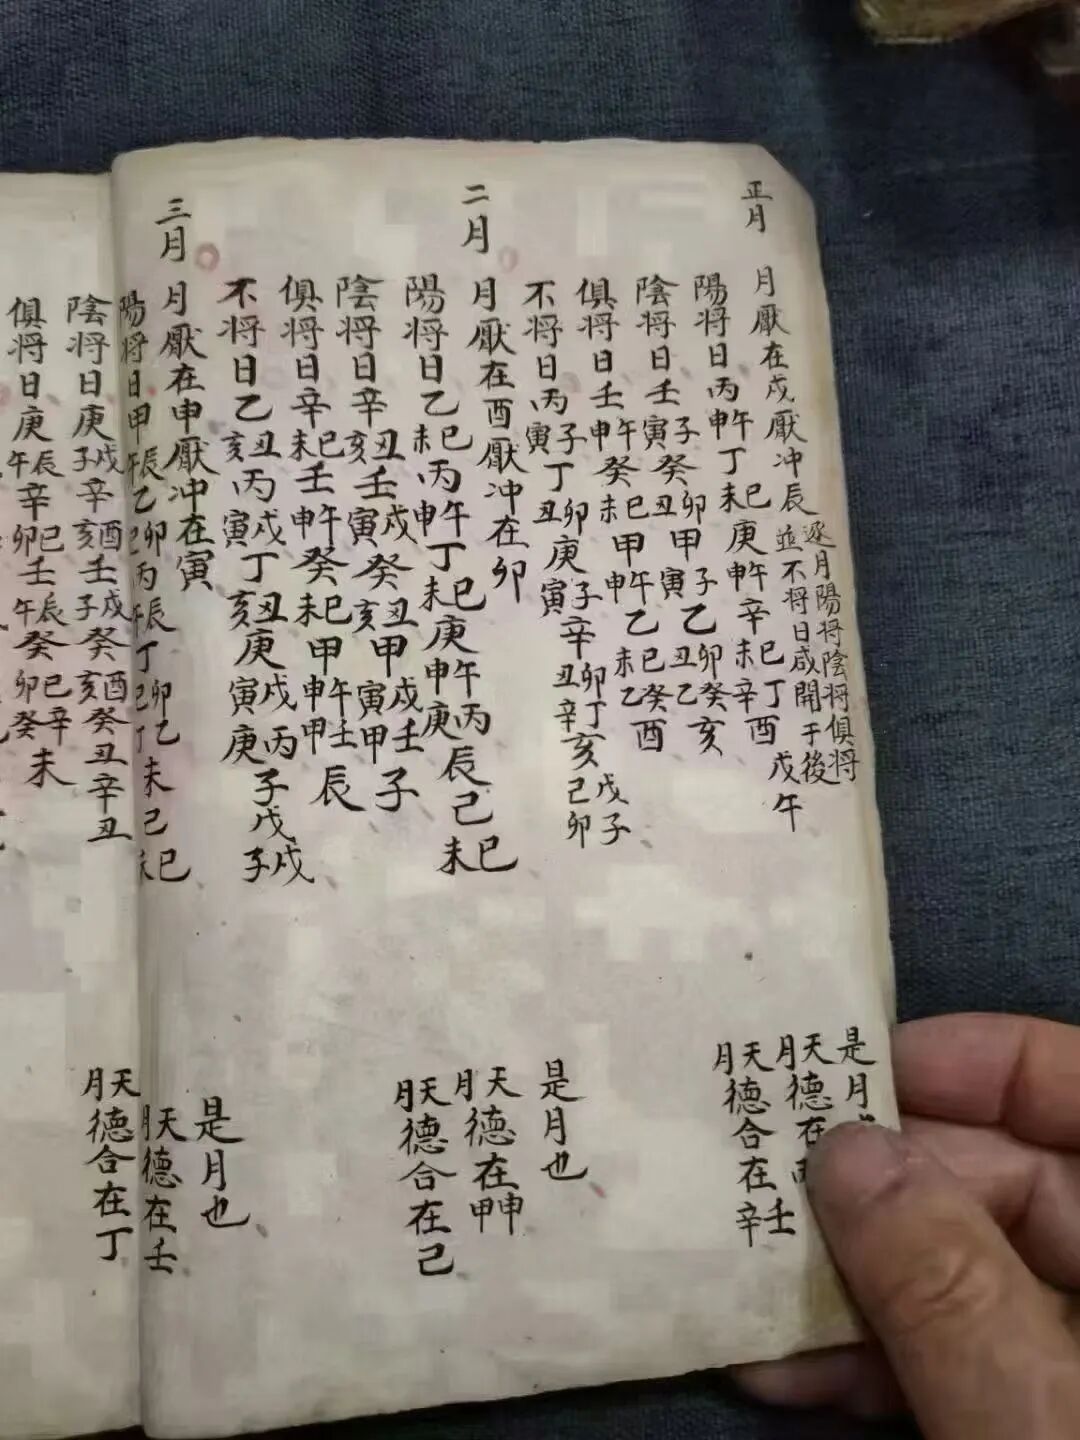 正月
月厭在戌厭冲辰
逐月陽将陰将俱将
並不将日咸開于後
陽将日丙午申丁巳未庚午申辛巳未丁辛酉戊午
陰将日壬子寅癸卯丑甲子寅乙卯丑癸乙亥
俱将日壬午申癸巳未甲午申乙巳未癸乙酉
不将日丙子寅丁卯丑庚子寅辛卯丑丁辛亥戊子己卯
是月
天月德在丙
天月德合在壬辛
二月
月厭在酉厭冲在卯
陽将日乙巳未丙午申丁巳未庚午申丙庚辰己巳未
陰将日辛丑亥壬戌寅癸丑亥甲戌寅壬甲子
俱将日辛巳未壬午申癸巳未甲午申壬甲辰
不将日乙丑亥丙戌寅丁丑亥庚戌寅丙庚子戊戌子
是月也
天月德在申甲
天月德合在己
三月
月厭在申厭冲在寅
陽将日甲辰午乙卯巳丙辰午丁卯巳乙丁未己巳未
陰将日庚戌子辛酉亥壬戌子癸酉亥癸丑辛丑
俱将日庚辰午辛巳卯壬辰午癸巳卯辛癸未
是月也
天月德在壬
天月德合在丁